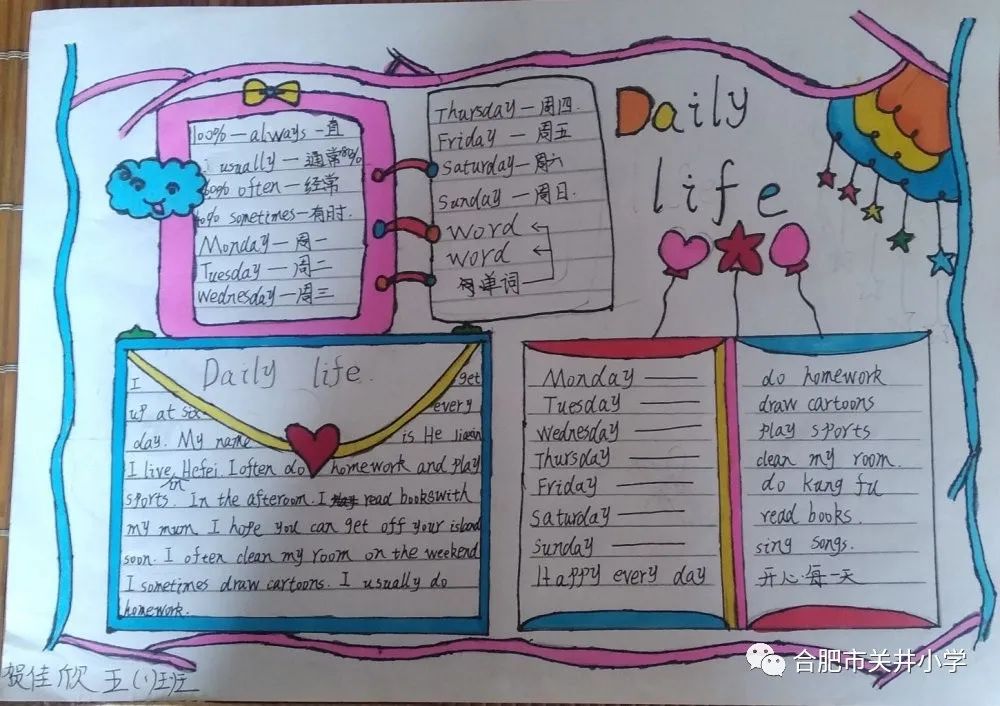 100% — always — 一直
usually — 通常80%
60% often — 经常
40% sometimes — 有时.
Monday — 周一
Tuesday — 周二
Wednesday — 周三
Thursday — 周四.
Friday — 周五
Saturday — 周六
Sunday — 周日.
word
word
单词
Daily
life
Daily life.
I get
up at six every
day. My name is He
I live in Hefei. I often do homework and play
sports. In the afteroom. I read books with
my mum. I hope you can get off your island
soon. I often clean my room on the weekend
I sometimes draw cartoons. I usually do
homework.
Monday —— do homework
Tuesday —— draw cartoons
Wednesday —— play sports
Thursday —— clean my room.
Friday —— do kung fu
Saturday —— read books.
Sunday —— sing songs.
Happy every day 开心每一天
贺佳欣 五(1)班
合肥市关井小学